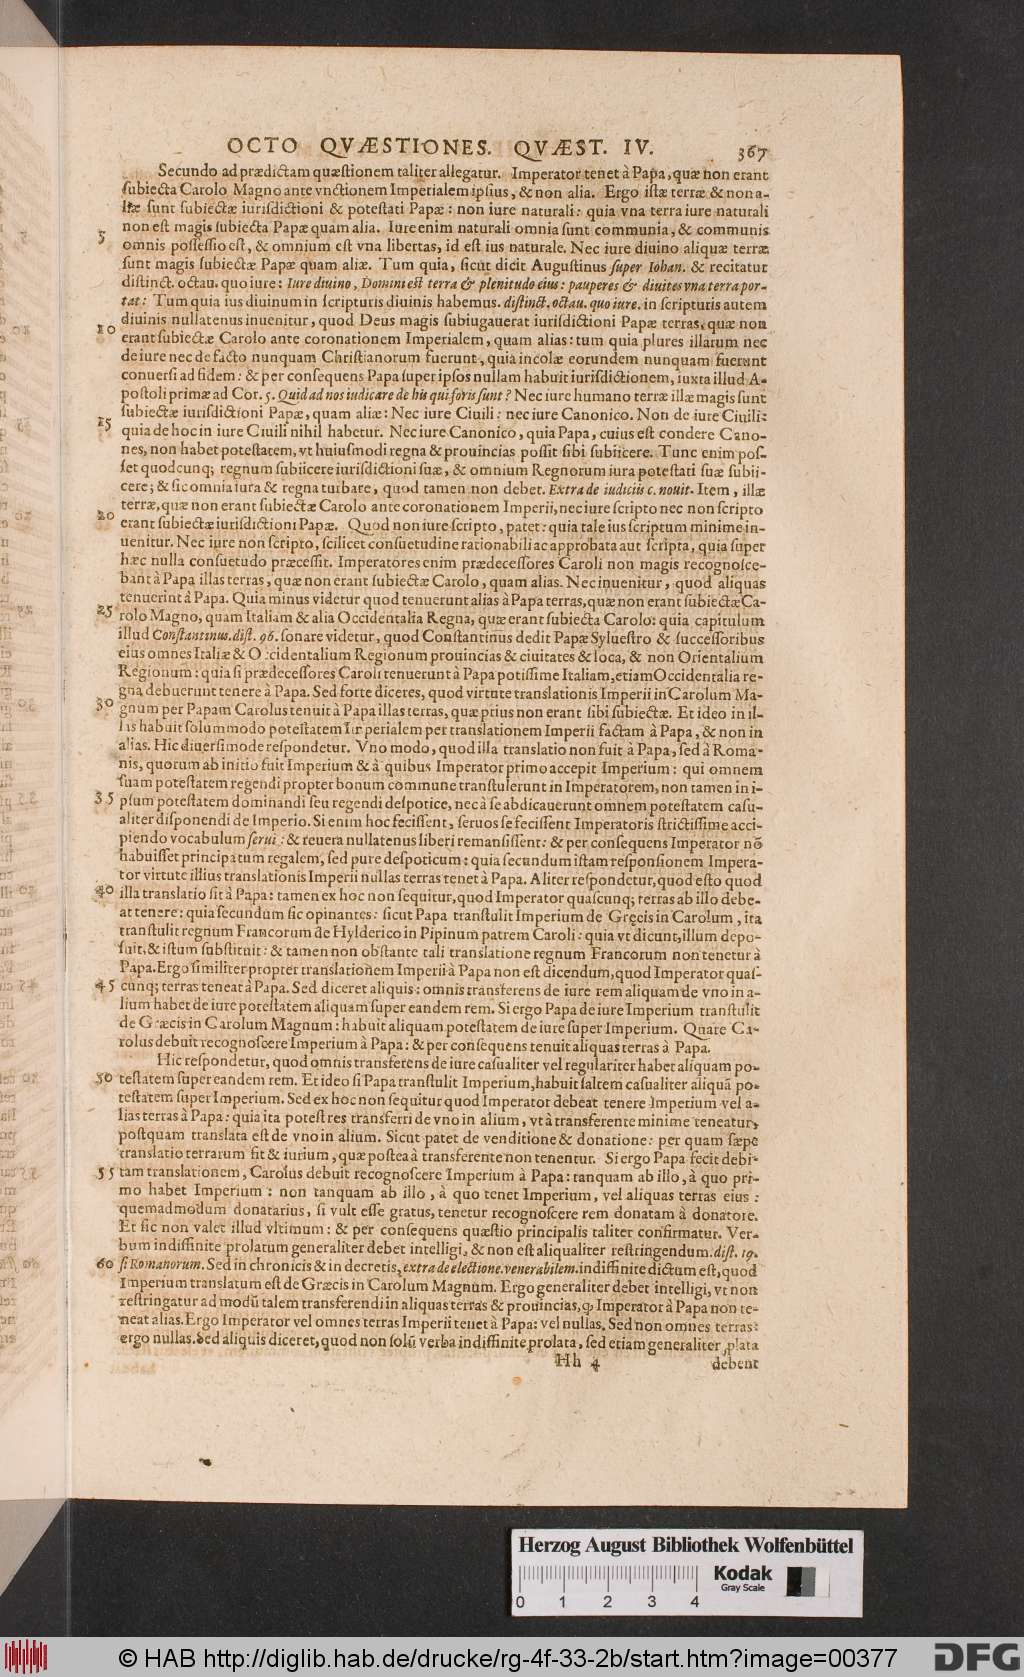 OCTO QVÆSTIONES. QVÆST. IV. 367
Secundo ad prædictam quæstionem taliter allegatur. Imperator tenet à Papa, quæ non erant
ſubiecta Carolo Magno ante vnctionem Imperialem ipſius, & non alia. Ergo iſtæ terræ & non a-
liæ ſunt ſubiectæ iuriſdictioni & poteſtati Papæ: non iure naturali: quia vna terra iure naturali
non eſt magis ſubiecta Papæ quam alia. Iure enim naturali omnia ſunt communia, & communis
5 omnis poſſeſſio eſt, & omnium eſt vna libertas, id eſt ius naturale. Nec iure diuino aliquæ terræ
ſunt magis ſubiectæ Papæ quam aliæ. Tum quia, ſicut dicit Auguſtinus ſuper Iohan. & recitatur
diſtinct. octau. quo iure: Iure diuino, Domini eſt terra & plenitudo eius: pauperes & diuites vna terra por-
tat: Tum quia ius diuinum in ſcripturis diuinis habemus. diſtinct. octau. quo iure. in ſcripturis autem
diuinis nullatenus inuenitur, quod Deus magis ſubiugauerat iuriſdictioni Papæ terras, quæ non
10 erant ſubiectæ Carolo ante coronationem Imperialem, quam alias: tum quia plures illarum nec
de iure nec de facto nunquam Chriſtianorum fuerunt, quia incolæ eorundem nunquam fuerunt
conuerſi ad fidem: & per conſequens Papa ſuper ipſos nullam habuit iuriſdictionem, iuxta illud A-
poſtoli primæ ad Cor. 5. Quid ad nos iudicare de his qui foris ſunt? Nec iure humano terræ illæ magis ſunt
ſubiectæ iuriſdictioni Papæ, quam aliæ: Nec iure Ciuili: nec iure Canonico. Non de iure Ciuili:
15 quia de hoc in iure Ciuili nihil habetur. Nec iure Canonico, quia Papa, cuius eſt condere Cano-
nes, non habet poteſtatem, vt huiuſmodi regna & prouincias poſſit ſibi ſubiicere. Tunc enim poſ-
ſet quodcunq; regnum ſubiicere iuriſdictioni ſuæ, & omnium Regnorum iura poteſtati ſuæ ſubii-
cere; & ſic omnia iura & regna turbare, quod tamen non debet. Extra de iudiciis c. nouit. Item, illæ
terræ, quæ non erant ſubiectæ Carolo ante coronationem Imperii, nec iure ſcripto nec non ſcripto
20 erant ſubiectæ iuriſdictioni Papæ. Quod non iure ſcripto, patet: quia tale ius ſcriptum minime in-
uenitur. Nec iure non ſcripto, ſcilicet conſuetudine rationabili ac approbata aut ſcripta, quia ſuper
hæc nulla conſuetudo præceſſit. Imperatores enim prædeceſſores Caroli non magis recognoſce-
bant à Papa illas terras, quæ non erant ſubiectæ Carolo, quam alias. Nec inuenitur, quod aliquas
tenuerint à Papa. Quia minus videtur quod tenuerunt alias à Papa terras, quæ non erant ſubiectæ Ca-
25 rolo Magno, quam Italiam & alia Occidentalia Regna, quæ erant ſubiecta Carolo: quia capitulum
illud Conſtantinus. diſt. 96. ſonare videtur, quod Conſtantinus dedit Papæ Sylueſtro & ſucceſſoribus
eius omnes Italiæ & Occidentalium Regionum prouincias & ciuitates & loca, & non Orientalium
Regionum: quia ſi prædeceſſores Caroli tenuerunt à Papa potiſſime Italiam, etiam Occidentalia re-
gna debuerunt tenere à Papa. Sed forte diceres, quod virtute translationis Imperii in Carolum Ma-
30 gnum per Papam Carolus tenuit à Papa illas terras, quæ prius non erant ſibi ſubiectæ. Et ideo in il-
lis habuit ſolummodo poteſtatem Imperialem per translationem Imperii factam à Papa, & non in
alias. Hic diuerſimode reſpondetur. Vno modo, quod illa translatio non fuit à Papa, ſed à Roma-
nis, quorum ab initio fuit Imperium & à quibus Imperator primo accepit Imperium: qui omnem
ſuam poteſtatem regendi propter bonum commune tranſtulerunt in Imperatorem, non tamen in i-
35 pſum poteſtatem dominandi ſeu regendi deſpotice, nec à ſe abdicauerunt omnem poteſtatem caſu-
aliter diſponendi de Imperio. Si enim hoc feciſſent, ſeruos ſe feciſſent Imperatoris ſtrictiſſime acci-
piendo vocabulum ſerui: & reuera nullatenus liberi remanſiſſent: & per conſequens Imperator nō
habuiſſet principatum regalem, ſed pure deſpoticum: quia ſecundum iſtam reſponſionem Impera-
tor virtute illius translationis Imperii nullas terras tenet à Papa. Aliter reſpondetur, quod eſto quod
40 illa translatio ſit à Papa: tamen ex hoc non ſequitur, quod Imperator quaſcunq; terras ab illo debe-
at tenere: quia ſecundum ſic opinantes: ſicut Papa tranſtulit Imperium de Gręcis in Carolum, ita
tranſtulit regnum Francorum de Hylderico in Pipinum patrem Caroli: quia vt dicunt, illum depo-
ſuit, & iſtum ſubſtituit: & tamen non obſtante tali translatione regnum Francorum non tenetur à
Papa. Ergo ſimiliter propter translationem Imperii à Papa non eſt dicendum, quod Imperator quaſ-
45 cunq; terras teneat à Papa. Sed diceret aliquis: omnis transferens de iure rem aliquam de vno in a-
lium habet de iure poteſtatem aliquam ſuper eandem rem. Si ergo Papa de iure Imperium tranſtulit
de Græcis in Carolum Magnum: habuit aliquam poteſtatem de iure ſuper Imperium. Quare Ca-
rolus debuit recognoſcere Imperium à Papa: & per conſequens tenuit aliquas terras à Papa.
Hic reſpondetur, quod omnis transferens de iure caſualiter vel regulariter habet aliquam po-
50 teſtatem ſuper eandem rem. Et ideo ſi Papa tranſtulit Imperium, habuit ſaltem caſualiter aliquā po-
teſtatem ſuper Imperium. Sed ex hoc non ſequitur quod Imperator debeat tenere Imperium vel a-
lias terras à Papa: quia ita poteſt res transferri de vno in alium, vt à transferente minime teneatur,
poſtquam translata eſt de vno in alium. Sicut patet de venditione & donatione: per quam ſæpe
translatio terrarum fit & iurium, quæ poſtea à transferente non tenentur. Si ergo Papa fecit debi-
55 tam translationem, Carolus debuit recognoſcere Imperium à Papa: tanquam ab illo, à quo pri-
mo habet Imperium: non tanquam ab illo, à quo tenet Imperium, vel aliquas terras eius:
quemadmodum donatarius, ſi vult eſſe gratus, tenetur recognoſcere rem donatam à donatore.
Et ſic non valet illud vltimum: & per conſequens quæſtio principalis taliter confirmatur. Ver-
bum indiffinite prolatum generaliter debet intelligi, & non eſt aliqualiter reſtringendum. diſt. 19.
60 ſi Romanorum. Sed in chronicis & in decretis, extra de electione. venerabilem. indiffinite dictum eſt, quod
Imperium translatum eſt de Græcis in Carolum Magnum. Ergo generaliter debet intelligi, vt non
reſtringatur ad modū talem transferendi in aliquas terras & prouincias, ꝙ Imperator à Papa non te-
neat alias. Ergo Imperator vel omnes terras Imperii tenet à Papa: vel nullas. Sed non omnes terras:
ergo nullas. Sed aliquis diceret, quod non ſolū verba indiffinite prolata, ſed etiam generaliter ꝓlata
Hh 4 debent
Herzog August Bibliothek Wolfenbüttel
Kodak
Gray Scale
0 1 2 3 4
© HAB http://diglib.hab.de/drucke/rg-4f-33-2b/start.htm?image=00377
DFG